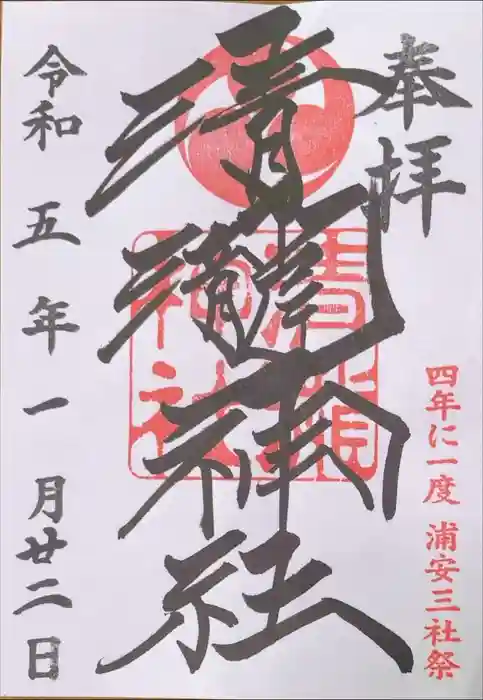 奉拝
四年に一度 浦安三社祭
清瀧神社
清瀧
神社
令和五年一月廿二日